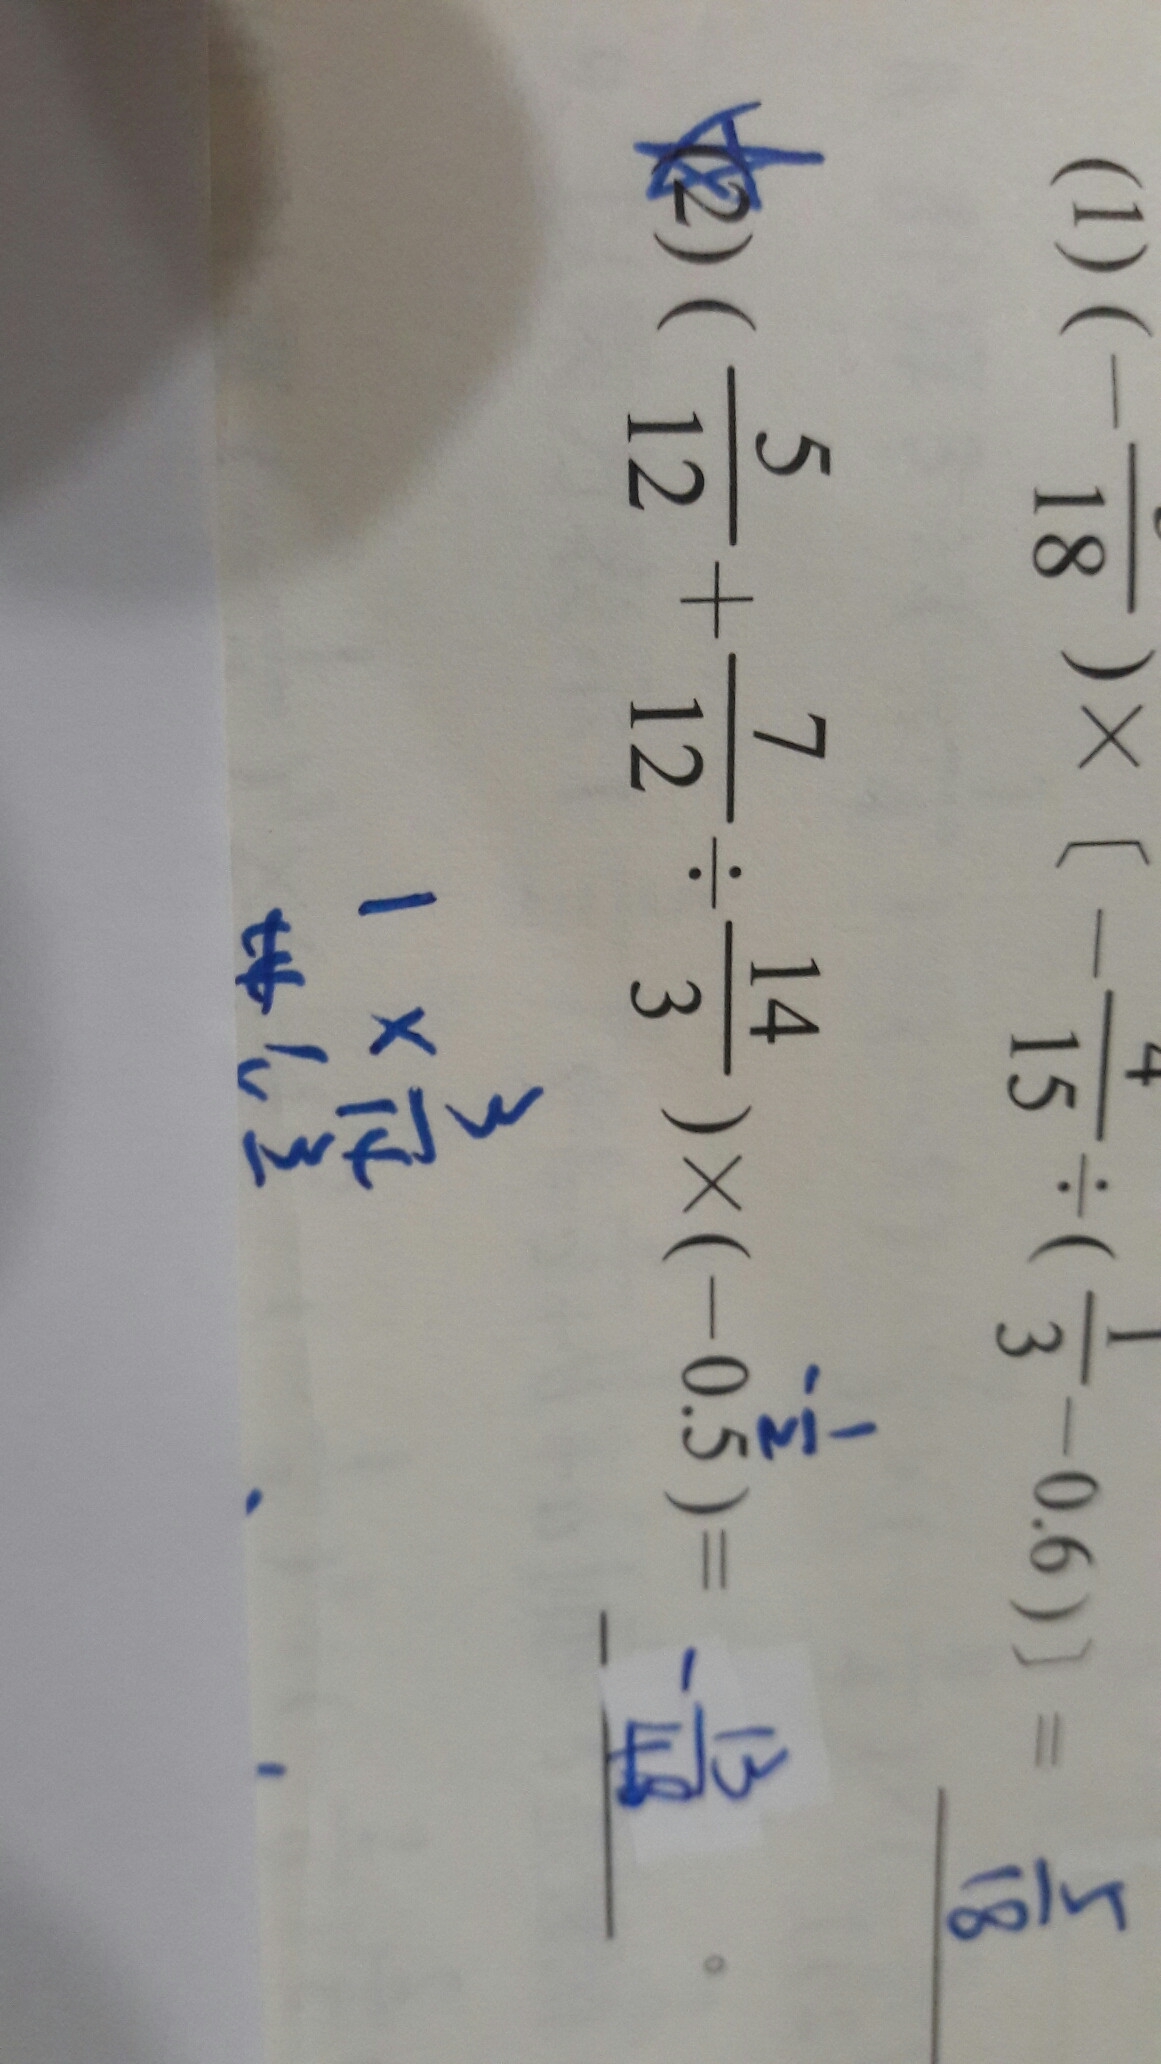 (1) ( - /18 ) × 〔 - 4/15 ÷ ( 1/3 - 0.6 ) 〕 = 5/18
(2) ( 5/12 + 7/12 ÷ 14/3 ) × ( - 0.5 ) = - 13/48 。
- 1/2
1 × 3/14